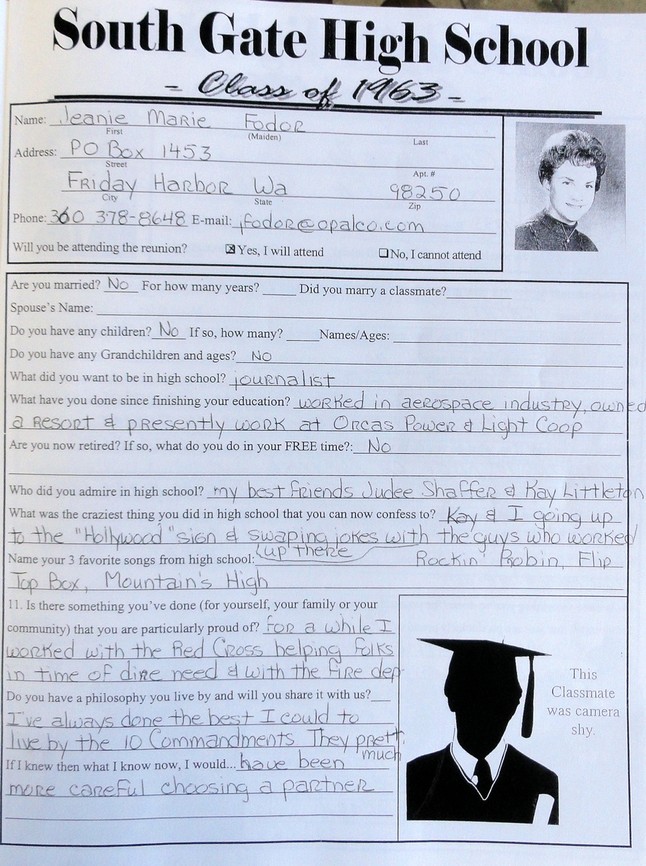 South Gate High School
- Class of 1963 -
Name: Jeanie Marie Fodor
First (Maiden) Last
Address: PO Box 1453
Street Apt. #
Friday Harbor Wa 98250
City State Zip
Phone: 360 378-8648 E-mail: jfodor@opalco.com
Will you be attending the reunion? ☒Yes, I will attend ☐No, I cannot attend
Are you married? No For how many years? Did you marry a classmate?
Spouse's Name:
Do you have any children? No If so, how many? Names/Ages:
Do you have any Grandchildren and ages? No
What did you want to be in high school? journalist
What have you done since finishing your education? worked in aerospace industry, owned
a resort & presently work at Orcas Power & Light Coop
Are you now retired? If so, what do you do in your FREE time?: No
Who did you admire in high school? my best friends Judee Shaffer & Kay Littleton
What was the craziest thing you did in high school that you can now confess to? Kay & I going up
to the "Hollywood" sign & swaping jokes with the guys who worked
up there
Name your 3 favorite songs from high school: Rockin' Robin, Flip
Top Box, Mountain's High
11. Is there something you've done (for yourself, your family or your
community) that you are particularly proud of? For a while I
worked with the Red Cross helping folks
in time of dire need & with the fire dep
Do you have a philosophy you live by and will you share it with us?
I've always done the best I could to
live by the 10 Commandments They pretty
much
If I knew then what I know now, I would... have been
more careful choosing a partner
This
Classmate
was camera
shy.